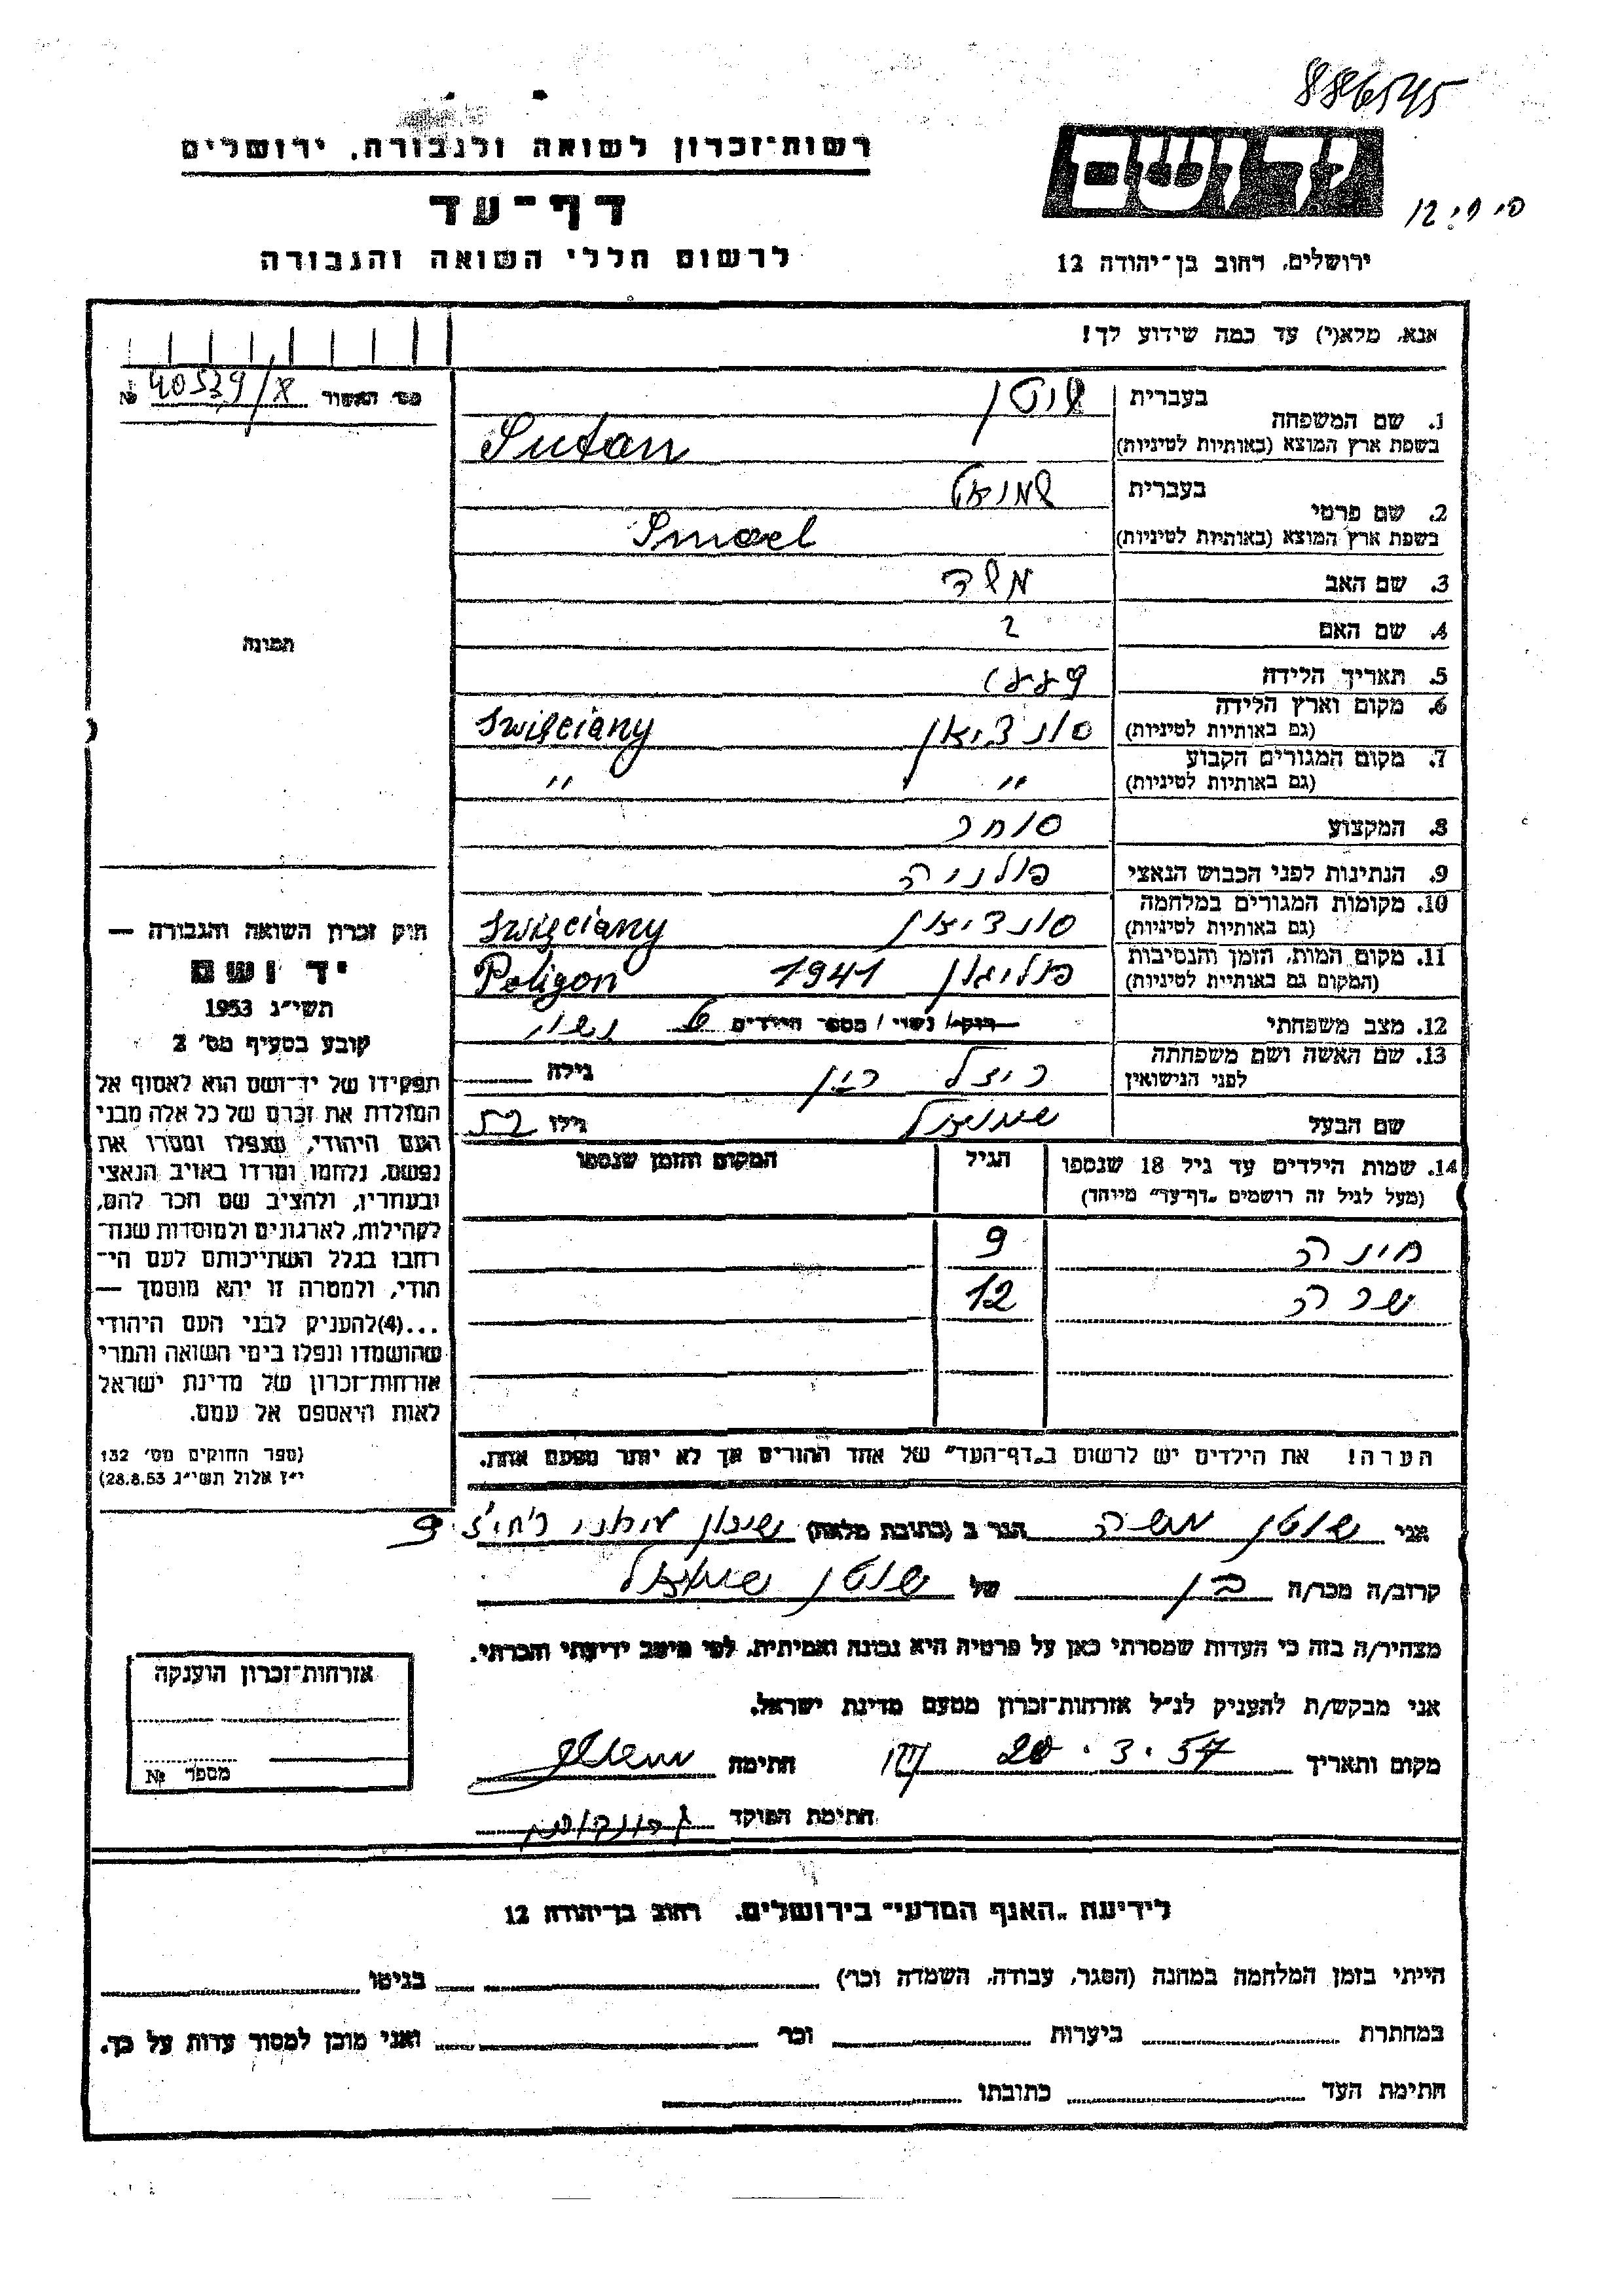 886545
רשות־זכרון לשואה ולגבורה, ירושלים
דף־עד
לרשום חללי השואה והגבורה
ידושם
ירושלים, רחוב בן־יהודה 12
אנא, מלא(י) עד כמה שידוע לך!
מס׳ האשור 40539/8 №
1. שם המשפחה
בעברית שוטן
בשפת ארץ המוצא (באותיות לטיניות) Sutan
2. שם פרטי
בעברית שמואל
בשפת ארץ המוצא (באותיות לטיניות) Smoel
3. שם האב משה
4. שם האם ?
5. תאריך הלידה
6. מקום וארץ הלידה (גם באותיות לטיניות) סונציאן Swięciany
7. מקום המגורים הקבוע (גם באותיות לטיניות) " "
8. המקצוע סוחר
9. הנתינות לפני הכבוש הנאצי פולניה
10. מקומות המגורים במלחמה (גם באותיות לטיניות) סונציאן Swięciany
11. מקום המות, הזמן והנסיבות (המקום גם באותיית לטיניות) פוליגון 1941 Poligon
12. מצב משפחתי רוק/ נשוי / מספר הילדים נשוי
13. שם האשה ושם משפחתה לפני הנישואין גילה
שם הבעל שמואל גילו
תמונה
חוק זכרון השואה והגבורה —
יד ושם
תשי״ג 1953
קובע בסעיף מס׳ 2
תפקידו של יד־ושם הוא לאסוף אל
המולדת את זכרם של כל אלה מבני
העם היהודי, שנפלו ומסרו את
נפשם, נלחמו ומרדו באויב הנאצי
ובעוזריו, ולהציב שם וזכר להם,
לקהילות, לארגונים ולמוסדות שנח־
רבו בגלל השתייכותם לעם הי־
הודי, ולמטרה זו יהא מוסמך —
...(4)להעניק לבני העם היהודי
שהושמדו ונפלו בימי השואה והמרי
אזרחות־זכרון של מדינת ישראל
לאות היאספם אל עמם.
(ספר החוקים מס׳ 132
י״ז אלול תשי״ג 28.8.53)
14. שמות הילדים עד גיל 18 שנספו הגיל המקום והזמן שנספו
(מעל לגיל זה רושמים „דף־עד״ מיוחד)
9
שרה 12
הערה! את הילדים יש לרשום ב„דף־העד״ של אחד ההורים אך לא יותר מפעם אחת.
אני שוטן משה הגר ב (כתובת מלאה) שיכון 9
קרוב/ה מכר/ה בן של שוטן שמואל
מצהיר/ה בזה כי העדות שמסרתי כאן על פרטיה היא נכונה ואמיתית, לפי מיטב ידיעתי והכרתי.
אני מבקש/ת להעניק לנ״ל אזרחות־זכרון מטעם מדינת ישראל.
מקום ותאריך 20.3.57 חתימה
חתימת הפוקד
אזרחות־זכרון הוענקה
מספר №
לידיעת „האגף המדעי״ בירושלים, רחוב בן־יהודה 12
הייתי בזמן המלחמה במחנה (הסגר, עבודה, השמדה וכו׳) בגיטו
במחתרת ביערות וכו׳ ואני מוכן למסור עדות על כך.
חתימת העד כתובתו